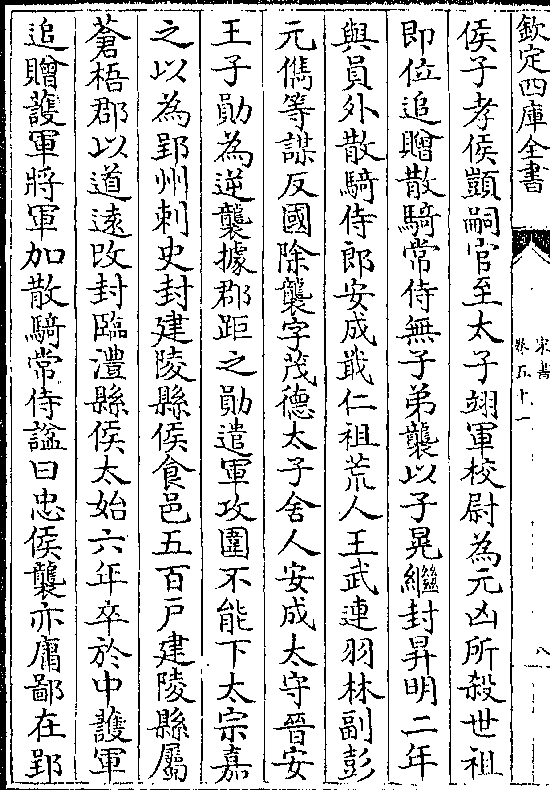 欽定四庫全書
宋書
卷五十一
八
侯子孝侯顗嗣官至太子翊軍校尉為元凶所殺世祖
即位追贈散騎常侍無子弟襲以子晃繼封昇明二年
與員外散騎侍郎安成戢仁祖荒人王武連羽林副彭
元儁等謀反國除襲字茂德太子舍人安成太守晉安
王子勛為逆襲據郡距之勛遣軍攻圍不能下太宗嘉
之以為郢州刺史封建陵縣侯食邑五百戸建陵縣屬
蒼梧郡以道遠改封臨澧縣侯太始六年卒於中護軍
追贈護軍將軍加散騎常侍諡曰忠侯襲亦庸鄙在郢